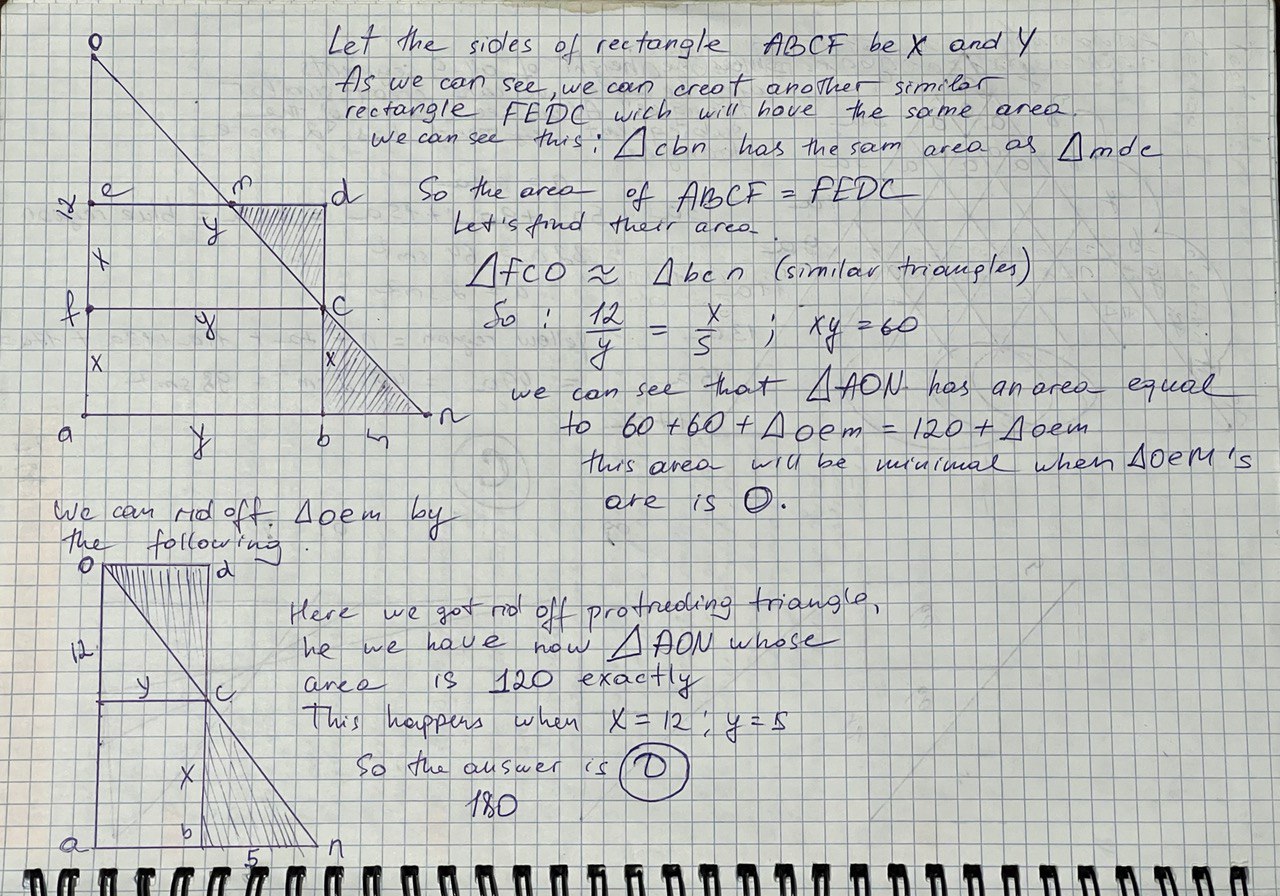 Let the sides of rectangle ABCF be X and Y
As we can see, we can creat another similar
rectangle FEDC wich will have the same area.
we can see this: Δcbn has the sam area as Δmdc
So the area of ABCF = FEDC
Let's find their area.
ΔfCO ≈ Δbcn (similar triangles)
So : 12/y = x/5 ; xy = 60
we can see that ΔAON has an area equal
to 60+60+Δoem = 120+Δoem
this area will be minimal when ΔOEM is
are is 0.
O
e
m
d
12
y
x
f
y
C
x
x
a
y
b
5
n
We can rid off. Δoem by
the following.
O
d
12
y
C
x
a
b
5
n
Here we got rid off protruding triangle,
he we have now ΔAON whose
area is 120 exactly
This happers when x=12; y=5
So the answer is D
180